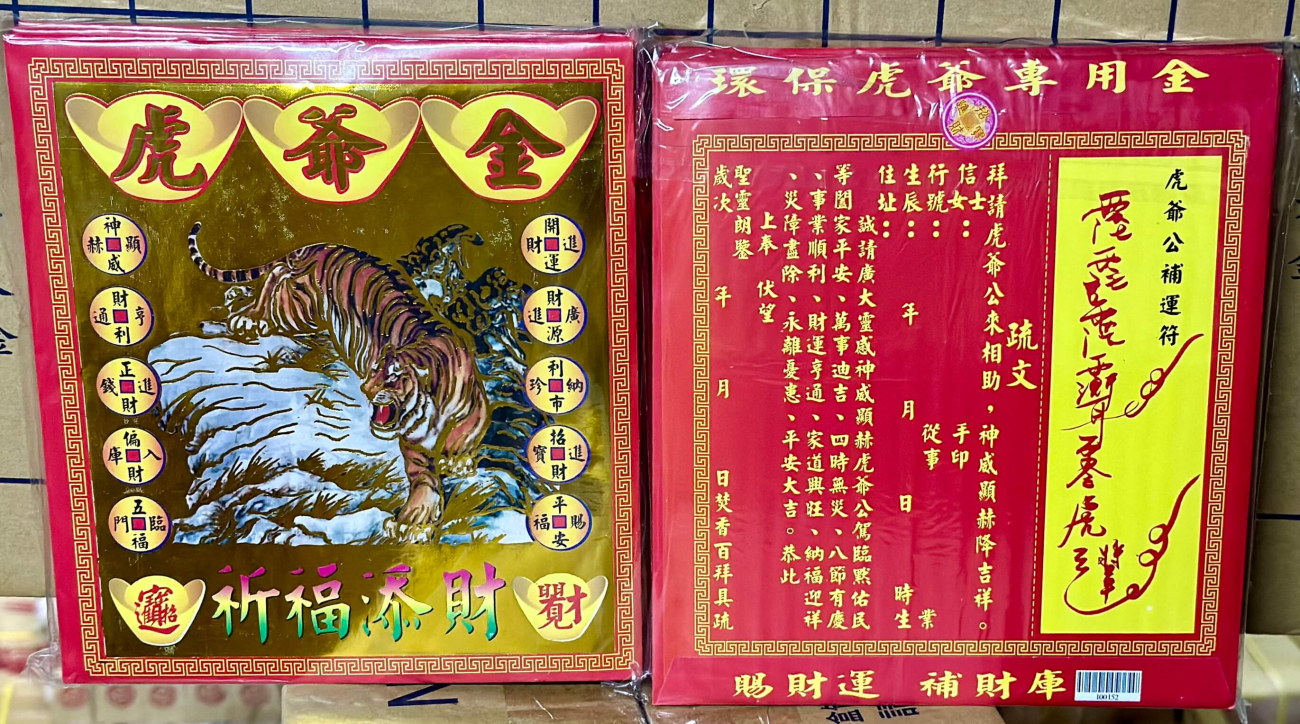 虎爺金
神威顯赫
財利亨通
正財進錢
偏財入庫
五福臨門
開運進財
財源廣進
利市納珍
招財進寶
平安賜福
祈福添財
環保虎爺專用金
虎爺公補運符
疏文
拜請虎爺公來相助，神威顯赫降吉祥。
信士女： 手印
行號： 從事 業
生辰： 年 月 日 時生
住址：
誠請廣大靈感神威顯赫虎爺公駕臨黙佑民
等闔家平安、萬事迪吉、四時無災、八節有慶
、事業順利、財運亨通、家道興旺、納福迎祥
、災障盡除、永離憂患、平安大吉。恭此
上奉 伏望
聖靈朗鑒
歲次 年 月 日焚香百拜具疏
賜財運 補財庫
100152